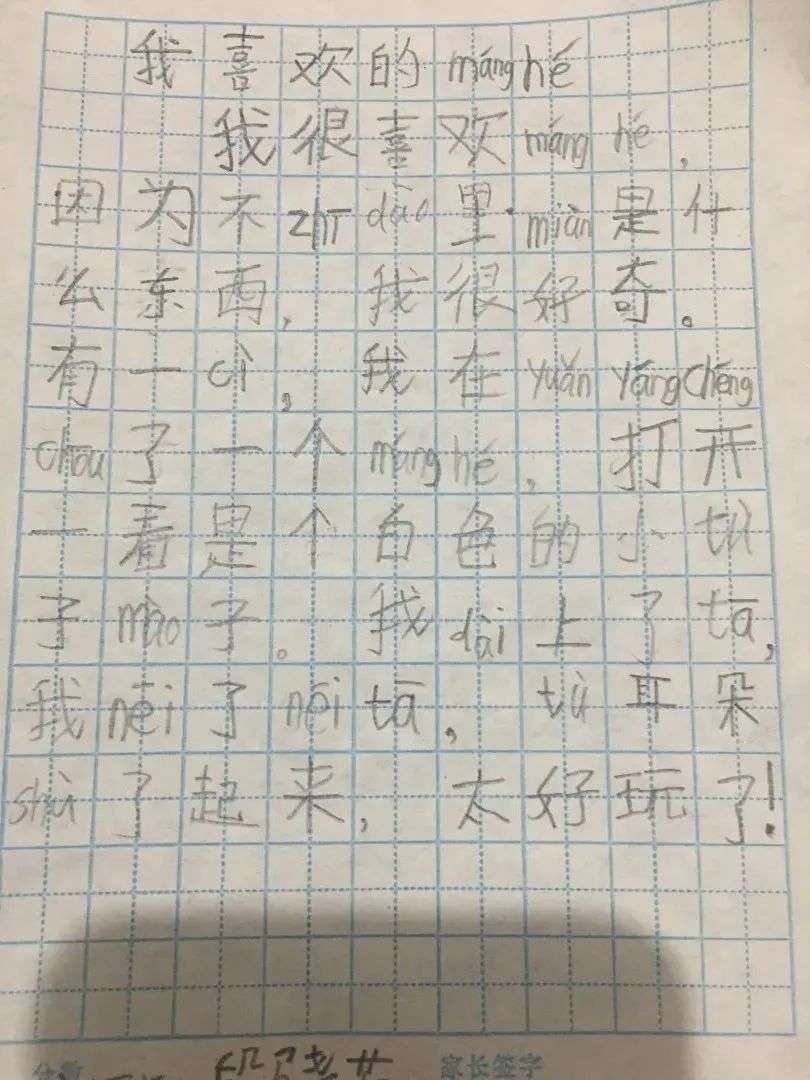 我喜欢的mánghé
我很喜欢mánghé,
因为不zhīdào里miàn是什
么东西,我很好奇。
有一cì,我在yuǎnyángchéng
chōu了一个mánghé,打开
一看是个白色的小tù
子mào子。我dài上了tā,
我nēi了nēi tā,tù耳朵
shù了起来,太好玩了!
家长签字